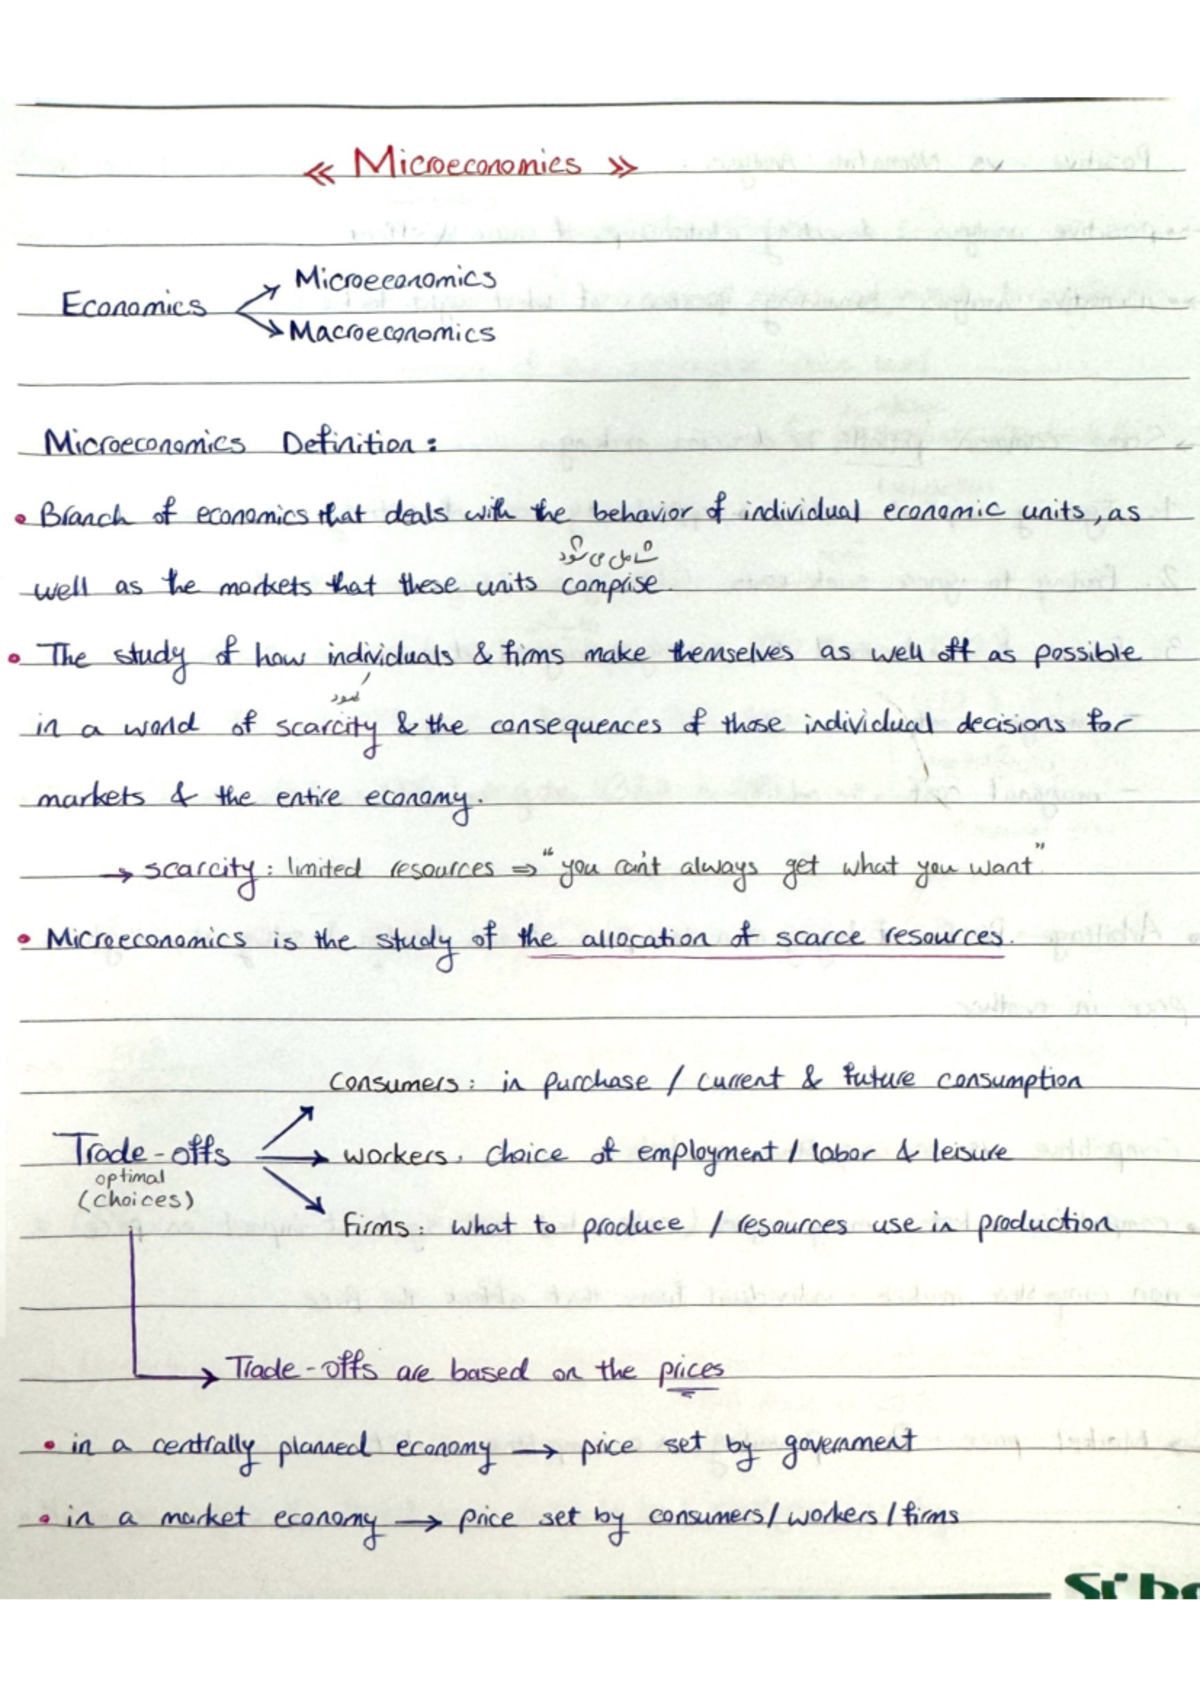 « Microeconomics »
Microeconomics
Economics
Macroeconomics
Microeconomics Definition:
• Branch of economics that deals with the behavior of individual economic units, as
شامل می شود
well as the markets that these units comprise.
• The study of how individuals & firms make themselves as well off as possible
کمبود
in a world of scarcity & the consequences of those individual decisions for
markets & the entire economy.
→ scarcity: limited resources ⇒ "you can't always get what you want"
• Microeconomics is the study of the allocation of scarce resources.
Consumers: in purchase / current & future consumption
Trade-offs → workers. choice of employment / labor & leisure
optimal
(choices)
Firms: what to produce / resources use in production
→ Trade-offs are based on the prices
• in a centrally planned economy → price set by government
• in a market economy → price set by consumers / workers / firms